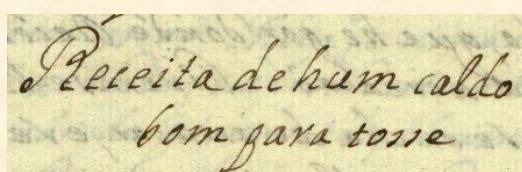 Receita de hum caldo
bom para tosse